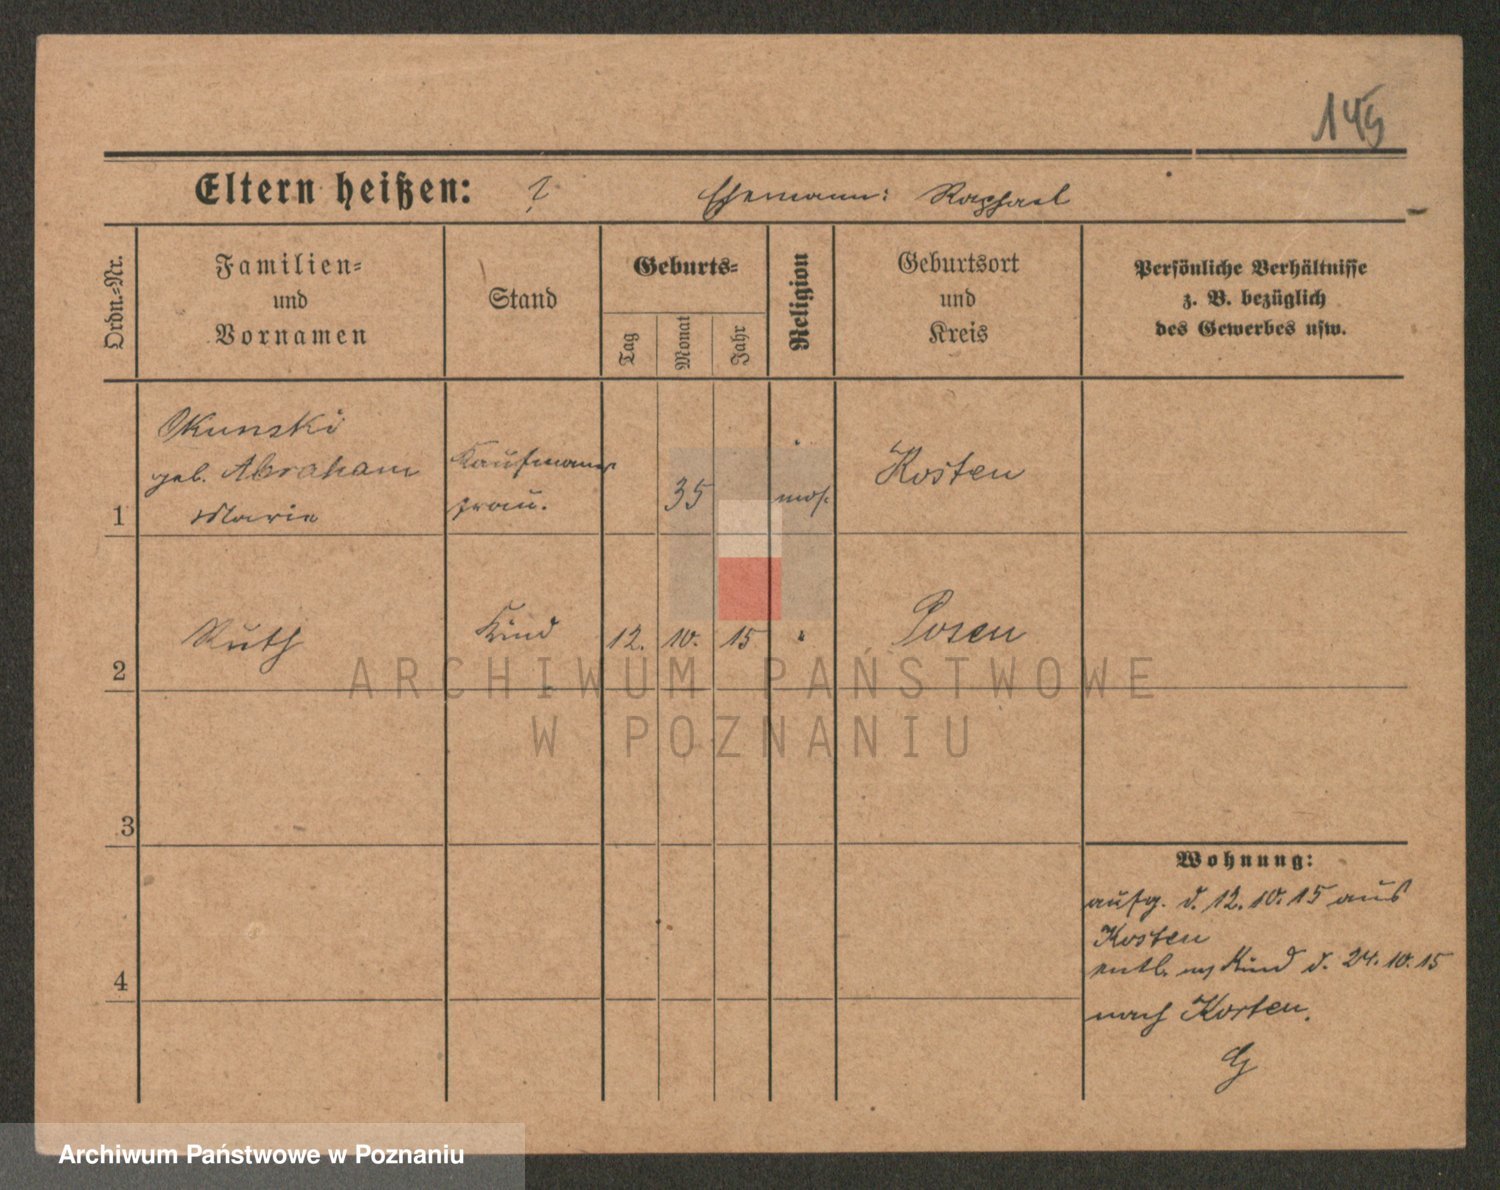 145
Eltern heißen: ? Ehemann: Raphael
Ordn.-Nr.
Familien-
und
Vornamen
Stand
Geburts-
Tag
Monat
Jahr
Religion
Geburtsort
und
Kreis
Persönliche Verhältnisse
z. B. bezüglich
des Gewerbes usw.
Okunski
geb. Abraham
Marie
Kaufmanns
frau.
1
35
mos.
Kosten
2
Ruth
Kind
12. 10. 15
Posen
ARCHIWUM PAŃSTWOWE
W POZNANIU
3
4
Wohnung:
aufg. d. 12. 10. 15 aus
Kosten
entl. m Kind d. 24. 10. 15
nach Kosten.
Archiwum Państwowe w Poznaniu